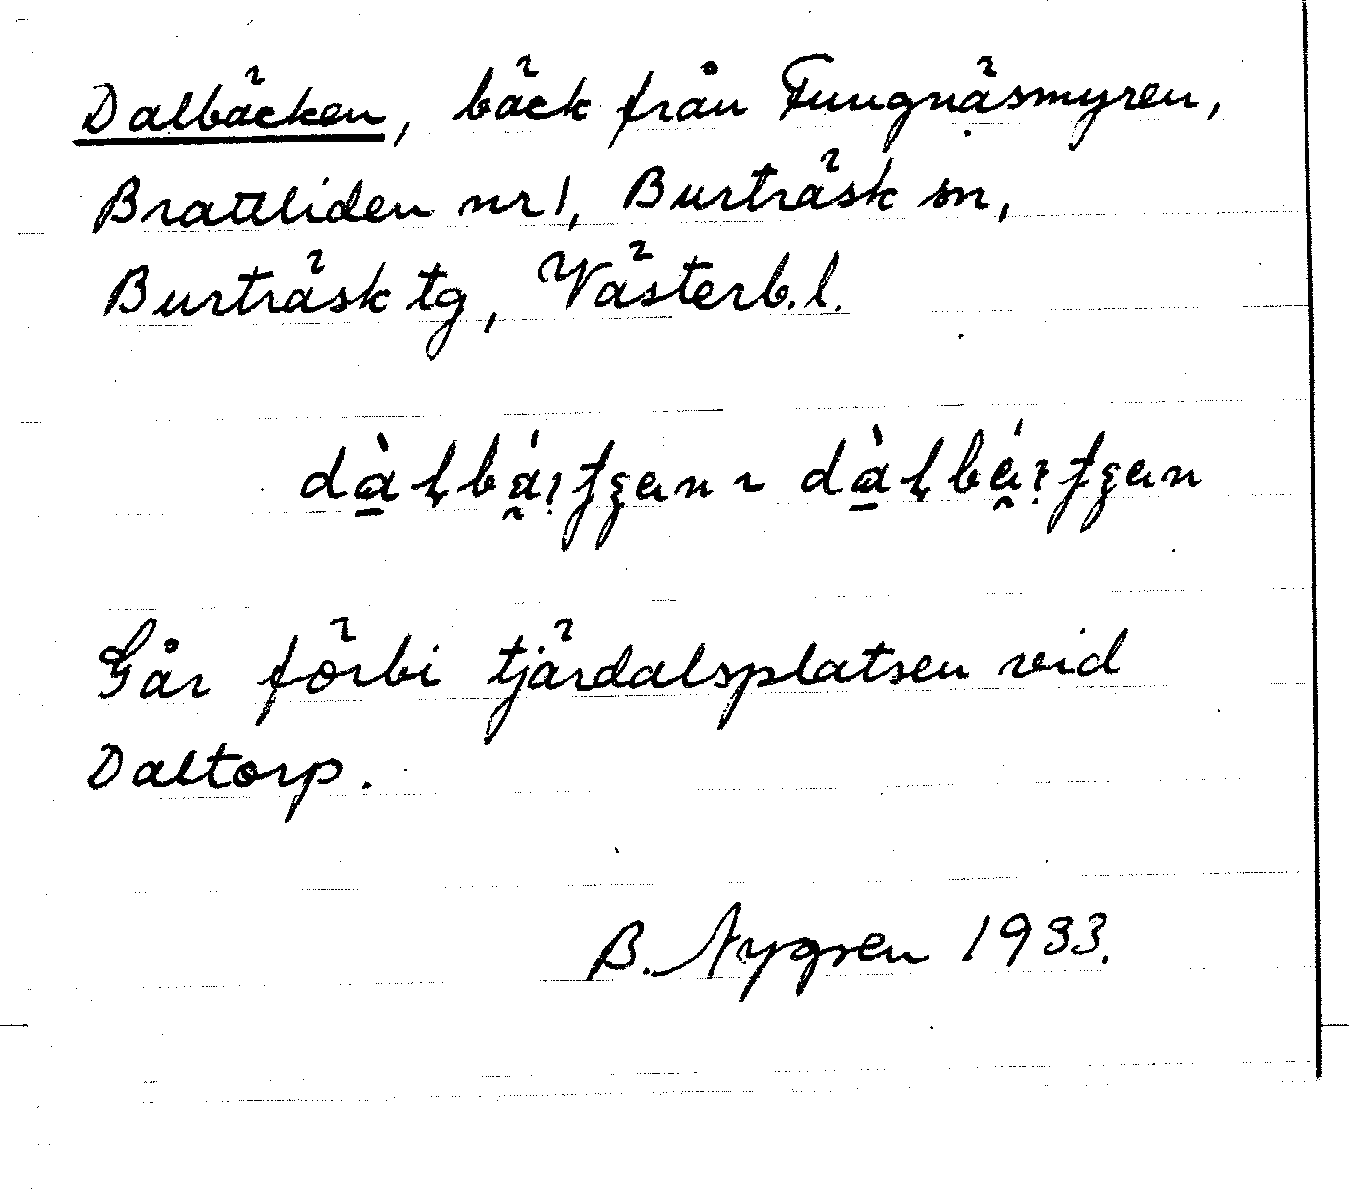 Dalbäcken, bäck från Fungnäsmyren,
Brattliden nr 1, Burträsk sn,
Burträsk tg, Västerb. l.
Går förbi tjärdalsplatsen vid
Daltorp.
B. Nygren 1933.